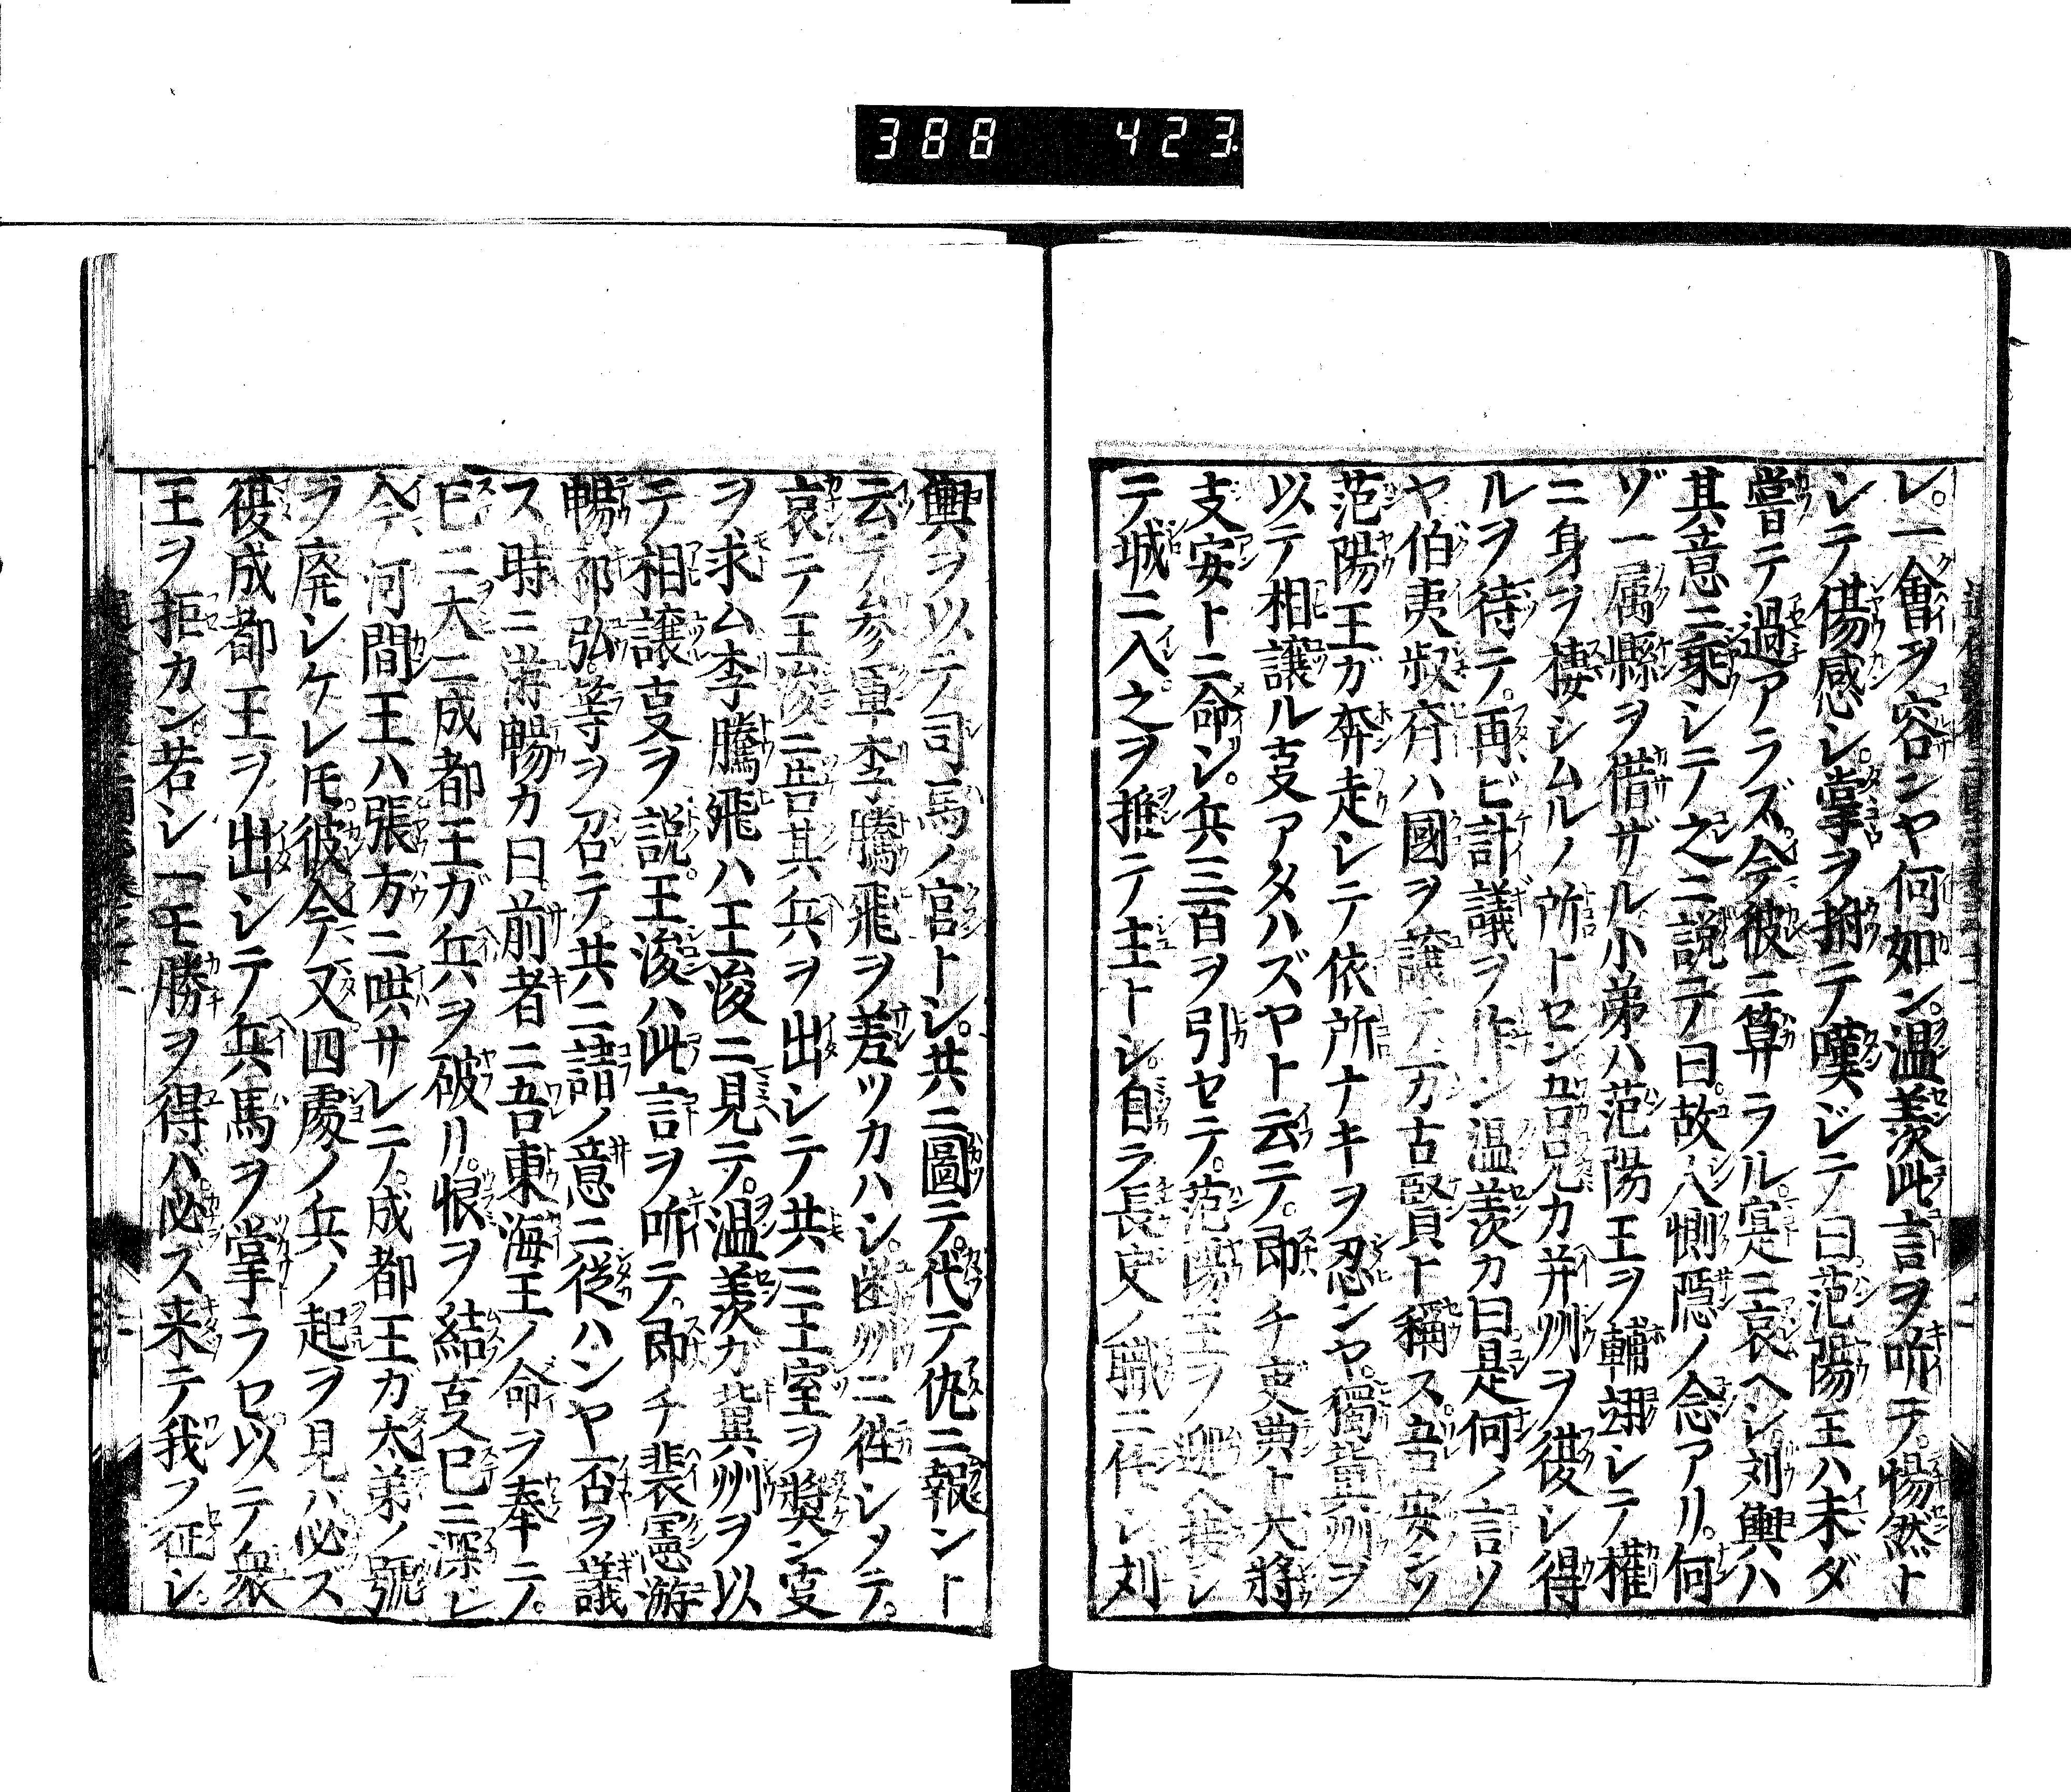 388 423
レ。一會ヲ容ンヤ何如ン。温羨此言ヲ听テ。惕然ト
シテ傷感シ。掌ヲ拊テ嘆ジテ曰范陽王ハ未ダ
嘗テ過アラズ。今彼ニ算ラル。寔ニ哀ヘシ。刘輿ハ
其意ニ乗シテ之ニ説テ曰。故人惻隠ノ念アリ。何
ゾ一属縣ヲ借ザル小弟ハ范陽王ヲ輔翊シテ權
ニ身ヲ棲シムルノ所トセン吾兄カ并州ヲ復シ得
ルヲ待テ。再ビ計議ヲ作ン温羨カ曰是何ノ言ソ
ヤ伯夷叔斉ハ國ヲ譲テ万古賢ト稱ス。吾安ソ
范陽王ガ奔走シテ依所ナキヲ忍ンヤ。獨冀州ヲ
以テ相譲ル叓アタハズヤト云テ。即チ吏典ト大將
支安トニ命シ。兵三百ヲ引セテ。范陽王ヲ迎ヘ接シ
テ城ニ入。之ヲ推テ主トシ。自ラ長史ノ職ニ任シ刘
輿ヲ以テ司馬ノ官トシ。共ニ圖テ。代テ仇ニ報ント
云テ。参軍李騰飛ヲ差ツカハシ。幽州ニ徃シメテ。
哀テ王浚ニ告其兵ヲ出シテ共ニ王室ヲ奬ン叓
ヲ求ム李騰飛ハ王浚ニ見テ。温羨カ冀州ヲ以
テ相譲叓ヲ説。王浚ハ此言ヲ听テ。即チ裴憲游
暢祁弘等ヲ召テ共ニ請ノ意ニ從ハンヤ否ヲ議
ス時ニ游暢カ曰。前者ニ吾東海王ノ命ヲ奉テ。
已ニ大ニ成都王ガ兵ヲ破リ。恨ヲ結叓已ニ深シ
今河間王ハ張方ニ哄サレテ。成都王カ太弟ノ號
ヲ廃シケレ𪜈。彼今又四處ノ兵ノ起ヲ見ハ必ズ
復成都王ヲ出シテ兵馬ヲ掌ラセ。以テ衆
王ヲ拒カン若シ一モ勝ヲ得ハ必ス来テ我ヲ征シ